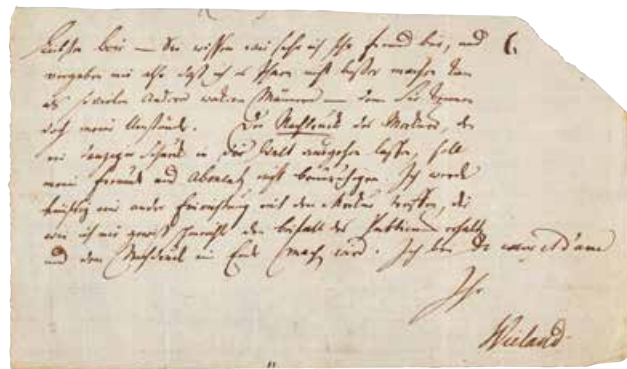 Liebster Boie — Sie wissen wie sehr ich Ihr Freund bin, und
vergeben mir also daß ich es Ihnen nicht besser machen kan
als so vielen andern wakern Männern — denn Sie kennen
doch meine Umstände. Der Nachdruck des Merkurs, den
ein in die Welt ausgehen lassen, soll
mein Freund und nicht Ich werde
künftig eine andre Einrichtung mit dem Merkur treffen, die
wie ich mir gewiß den Beifall des Publicums erhalten
und dem Nachdruck ein Ende machen wird. Ich bin de coeur et d'ame
Ihr
Wieland